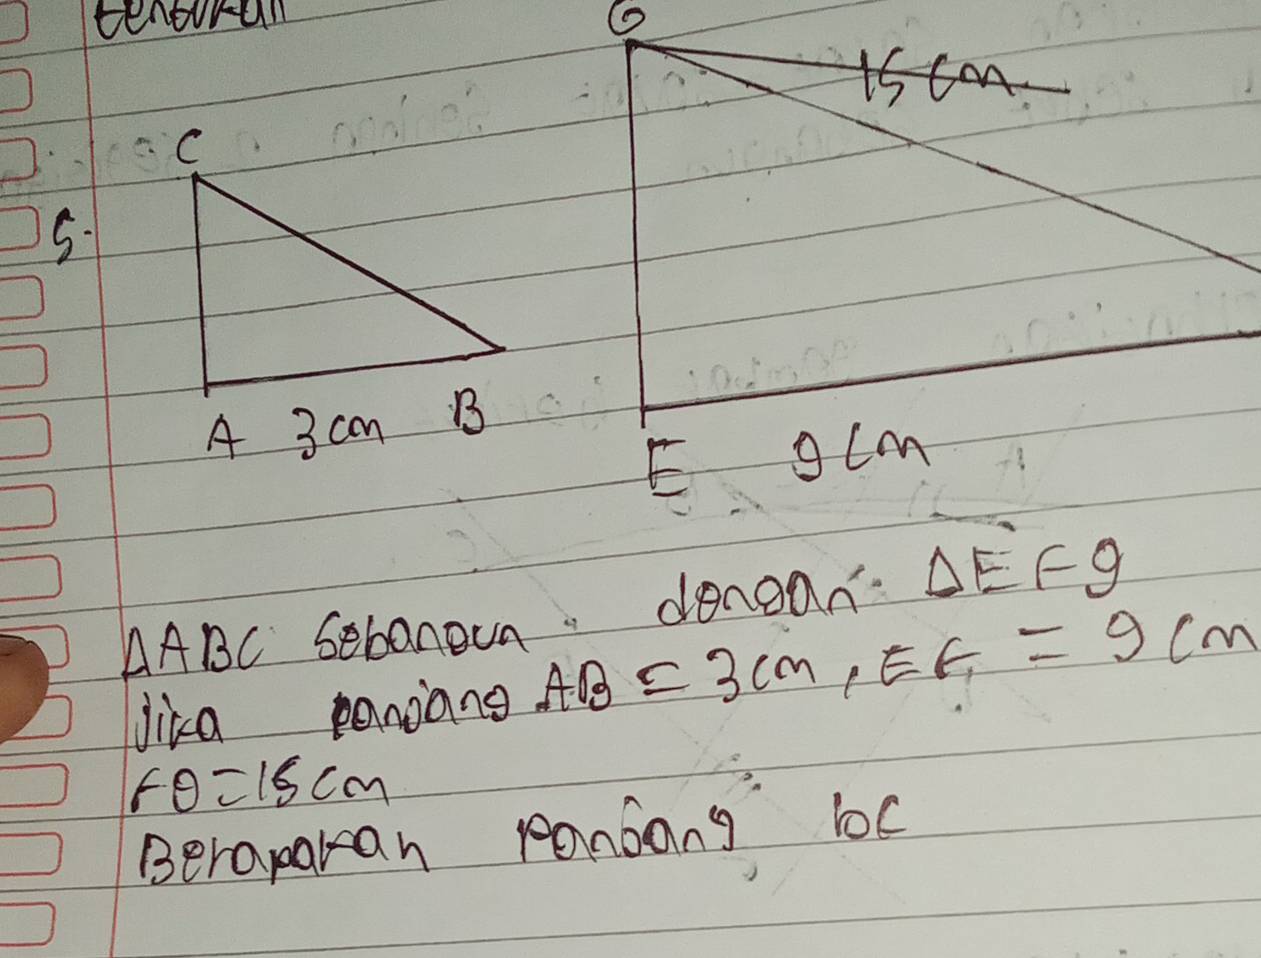 G
15 cm
C
5.
A 3 cm B
E 9 cm
ΔABC Sebanoun dengan ΔEFg
Jika panjang AB = 3 cm, EF = 9 cm
FG = 15 cm
Berapakah Panjang bc